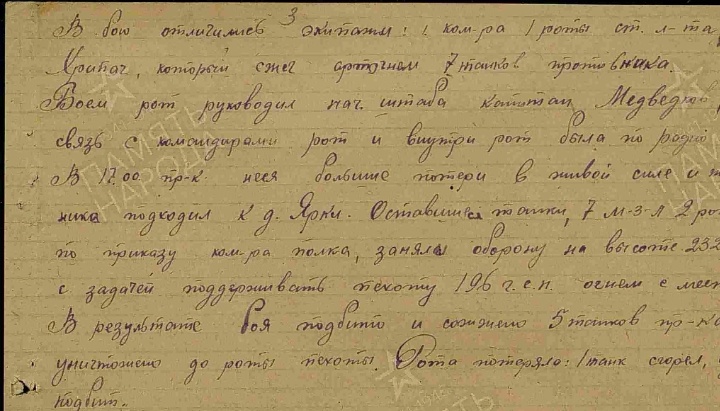 В бою отличились 3 экипажа: 1 ком-ра 1 роты ст. л-та
Хрипач, который сжег артогнем 7 танков противника.
Боем рот руководил нач. штаба капитан Медведков,
связь с командирами рот и внутри рот была по радио
В 17.00 пр-к неся большие потери в живой силе и т
ника подходил к д. Ярки. Оставшиеся танки, 7 м-3-л 2 ро
по приказу ком-ра полка, заняли оборону на высоте 232
с задачей поддерживать пехоту 196 г.с.п. огнем с мест
В результате боя подбито и сожжено 5 танков пр-ка
уничтожено до роты пехоты. Рота потеряла: 1 танк сгорел,
подбит.
ПАМЯТЬ
НАРОДА
ПАМЯТЬ